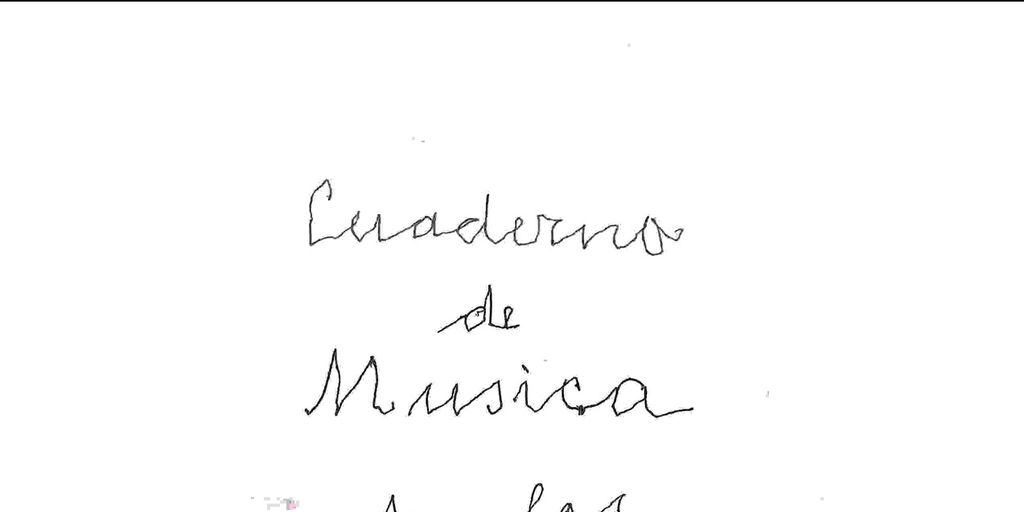 Cuaderno
de
Musica